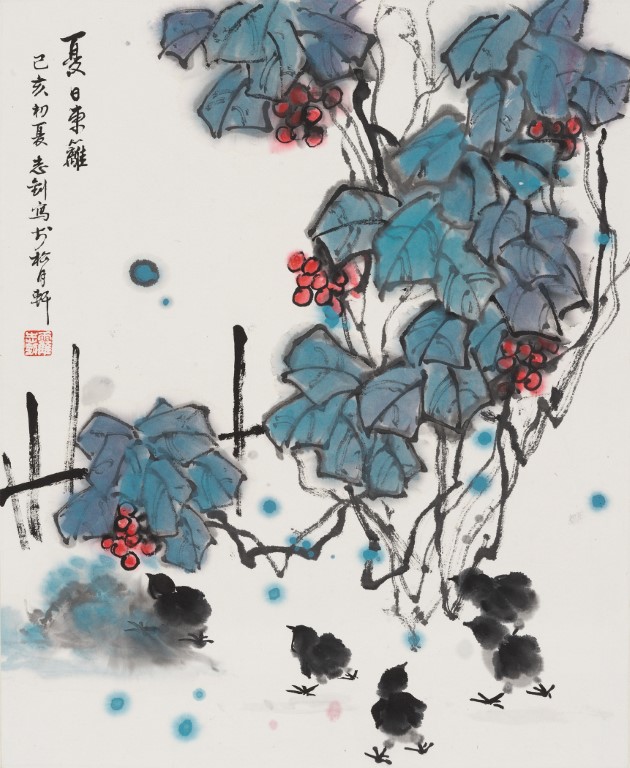 夏日東籬
己亥初夏志钊写於松月軒